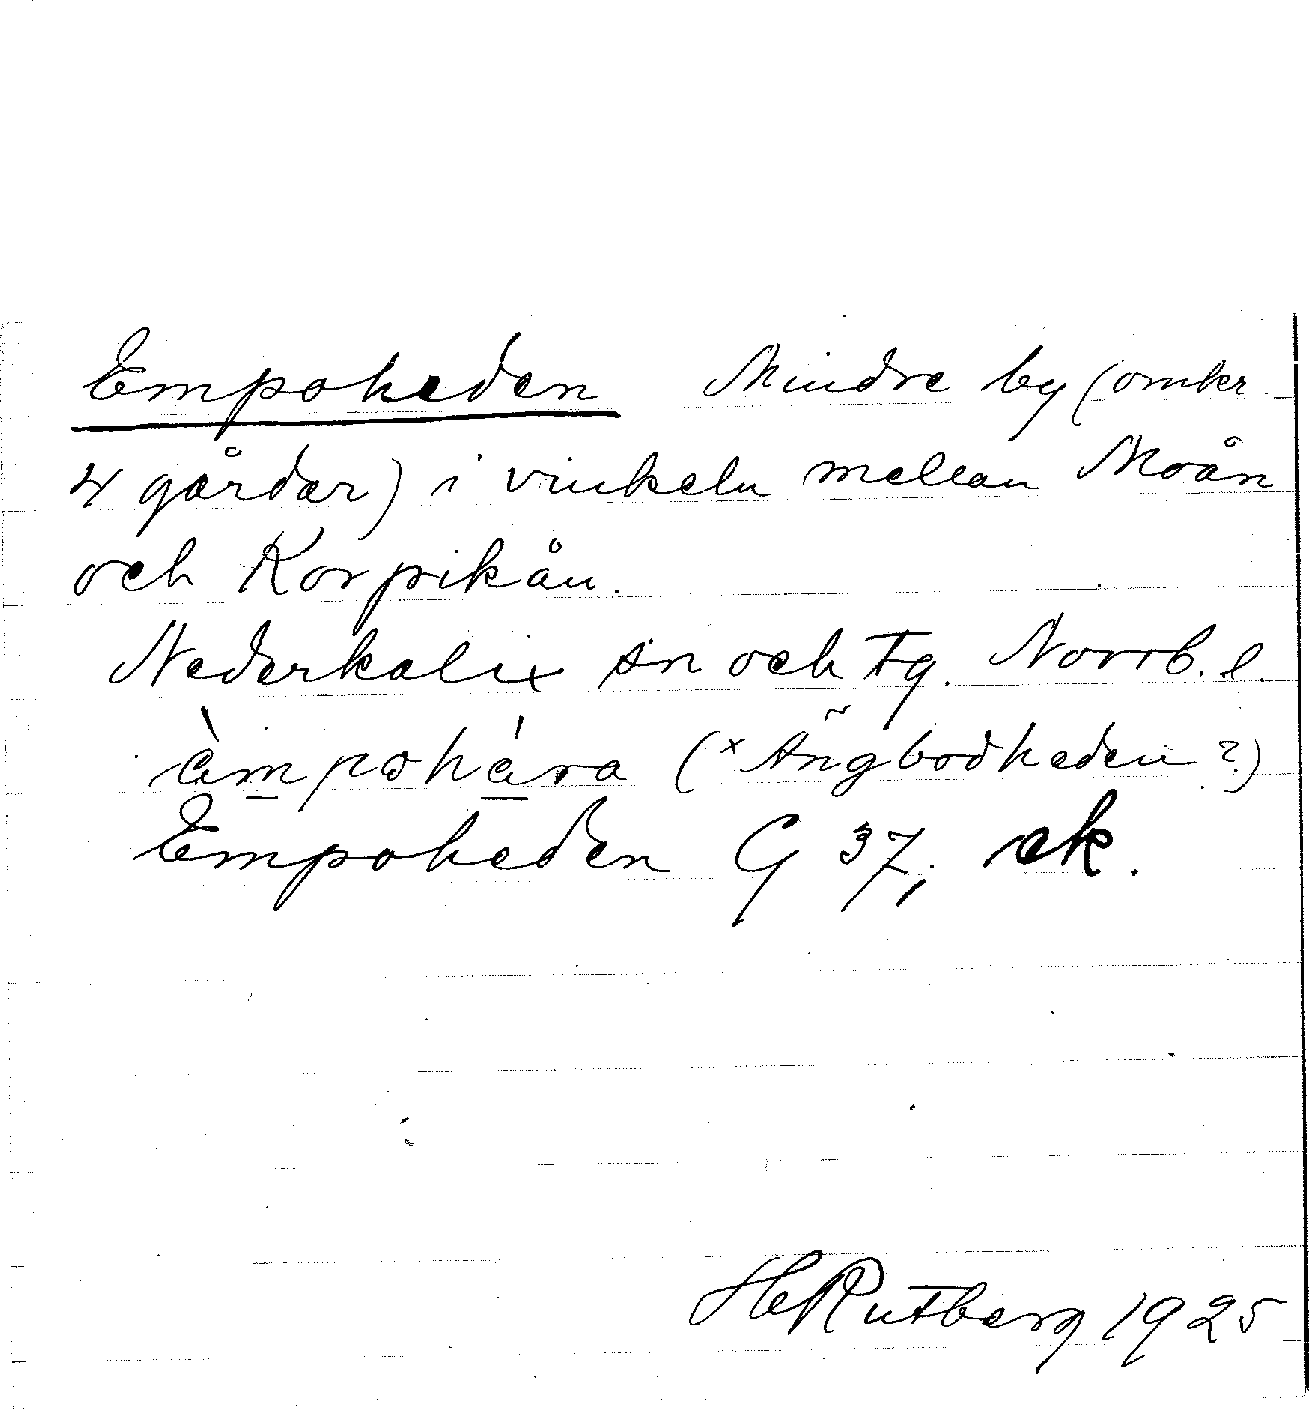 Empoheden Mindre by (omkr
4 gårdar) i vinkeln mellan Moån
och Korpikån.
Nederkalix sn och tg. Norrb. l.
àmpohára (ˣÄngbodheden?)
Empoheden G 37, ek.
HRutberg 1925